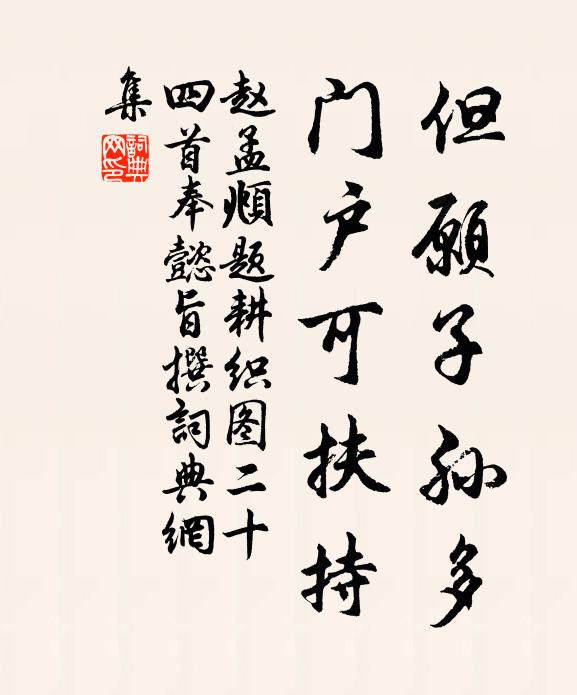 但愿子孙多
门户可扶持
赵孟頫题耕织图二十
四首奉懿旨撰詞典網
集
詞典
网印